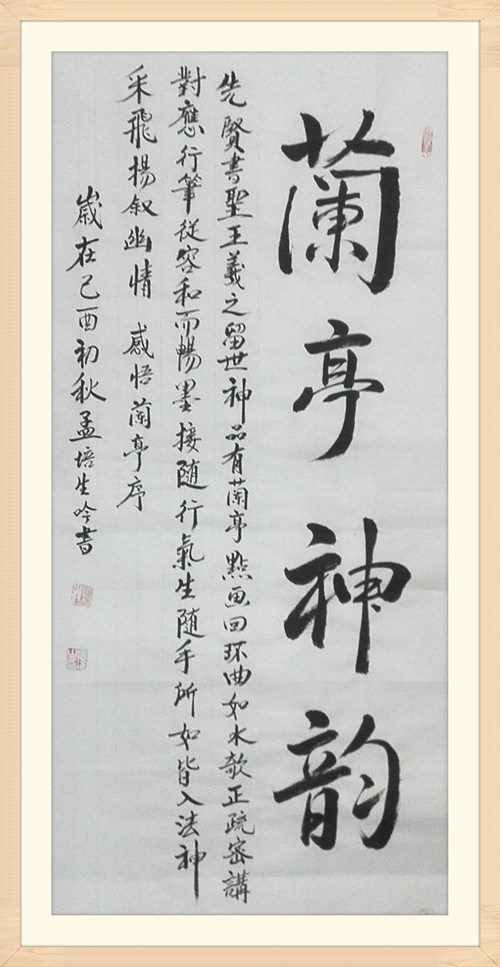 蘭亭神韵
先賢書聖王羲之留世神品有蘭亭點画回环曲如水欹正疏密講
對應行筆從容和而暢墨接随行氣生随手所如皆入法神
采飛揚叙幽情 感悟蘭亭序
歲在己酉初秋孟培生吟書